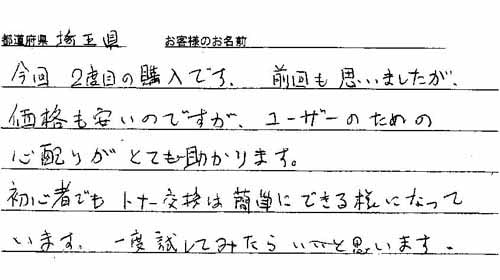 都道府県 埼玉県 お客様のお名前
今回 2度目の購入です。前回も思いましたが、
価格も安いのですが、ユーザーのための
心配りがとても助かります。
初心者でも トナー交換は簡単にできる様になって
います。一度試してみたらいいと思います。